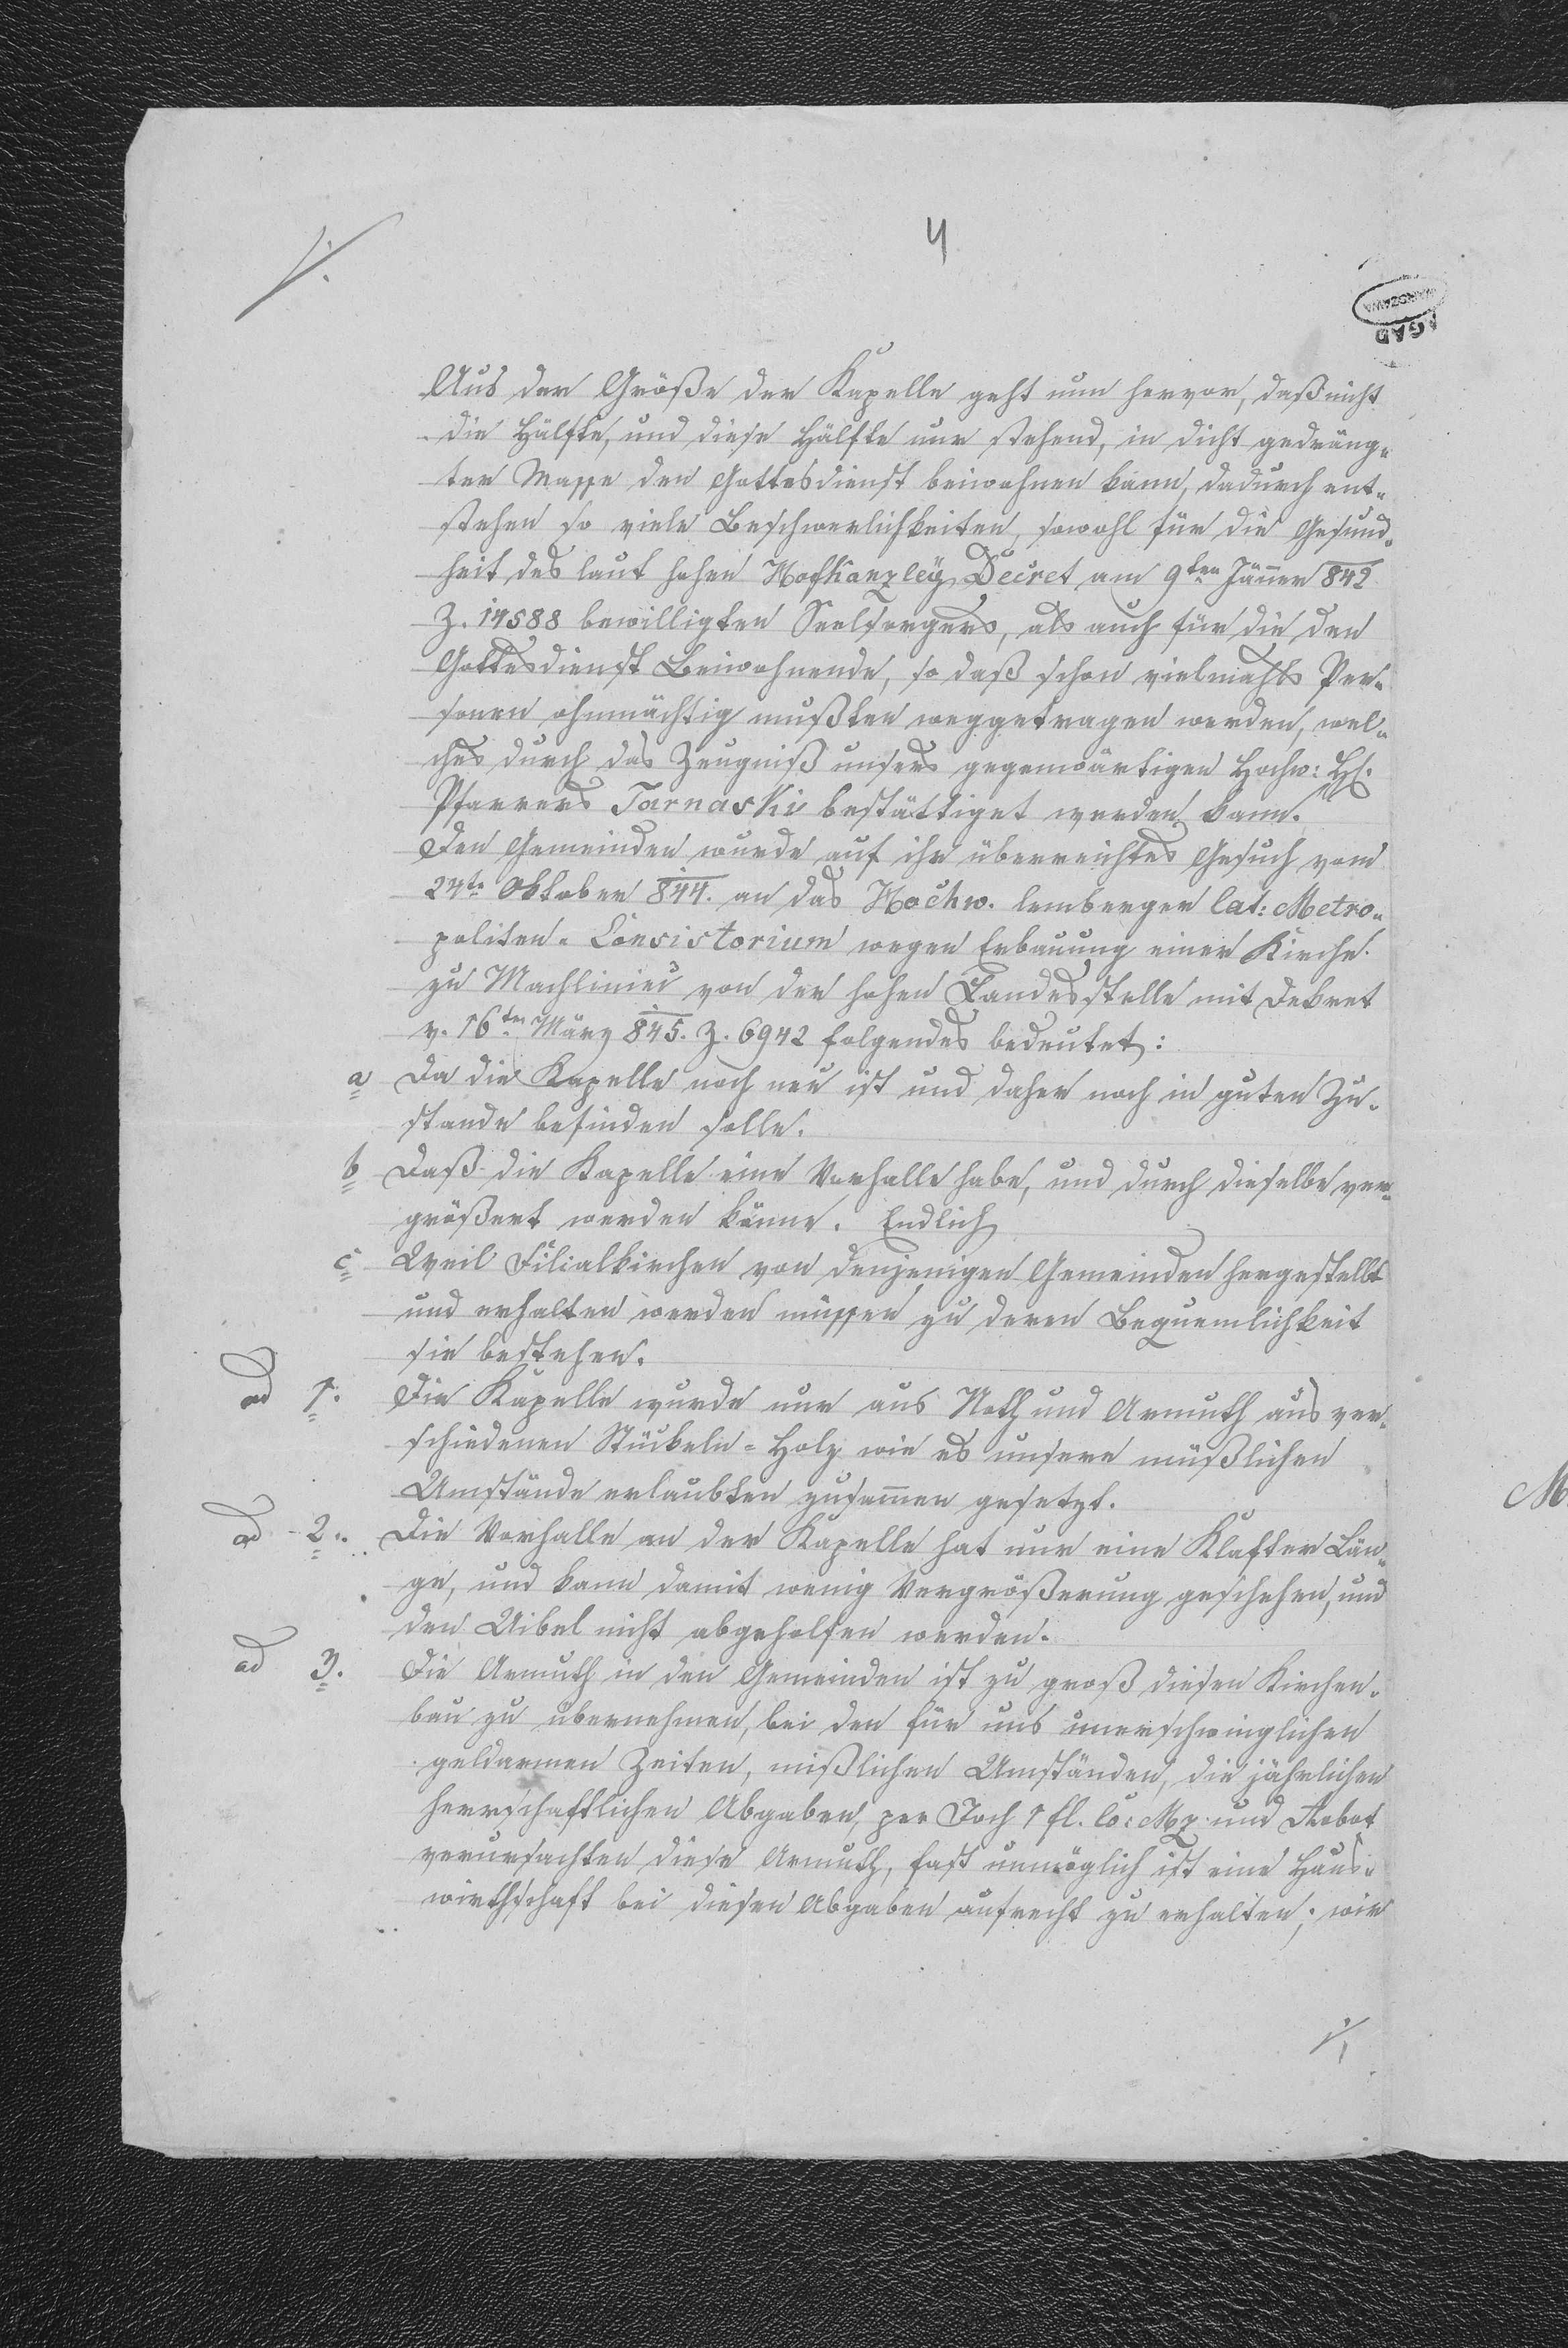 4
./.
AGAD
WARSZAWA
Aus der Größe der Kapelle geht nun hervor, daß nicht
die Hälfte, und diese Hälfte nur stehend, in dicht gedräng-
ter Masse den Gottesdienst beiwohnen kann, dadurch ent-
stehen so viele Beschwerlichkeiten, sowohl für die Gesund-
heit des laut hohen Hofkanzleÿ Decret am 9ten Jänner 842
Z. 14588 bewilligten Seelsorgers, als auch für die den
Gottesdienst Beiwohnende, so daß schon vielmahls Per-
sonen ohnmächtig mußten weggetragen werden, wel-
ches durch das Zeugniß unsers gegenwärtigen Hochw: H.
Pfarrers Tarnaski bestättiget werden kann.
Den Gemeinden wurde auf ihr überreichtes Gesuch vom
24te Oktober 844. an das Hochw. lemberger lat: Metro-
politen-Consistorium wegen Erbauung einer Kirche
zu Machliniec von der hohen Landesstelle mit Dekret
v. 16ten März 845. Z. 6942 folgendes bedeutet:
a Da die Kapelle noch neu ist und daher noch in guten Zu-
stande befinden solle.
b Daß die Kapelle eine Vorhalle habe, und durch dieselbe ver-
größert werden könne. Endlich
c Weil Filialkirchen von denjenigen Gemeinden hergestellt
und erhalten werden müssen zu deren Bequemlichkeit
sie bestehen.
ad 1. Die Kapelle wurde nur aus Noth und Armuth aus ver-
schiedenen Stückeln-Holz wie es unsere mißlichen
Umstände erlaubten zusammen gesetzt.
ad 2. Die Vorhalle an der Kapelle hat nur eine Klafter Län-
ge, und kann damit wenig Vergrößerung geschehen, und
den Uibel nicht abgeholfen werden.
ad 3. Die Armuth in den Gemeinden ist zu groß diesen Kirchen-
bau zu übernehmen, bei den für uns unerschwinglichen
geldarmen Zeiten, mißlichen Umständen, die jährlichen
herrschaftlichen Abgaben, per Joch 1 fl. Co: Mz und Robot
verursachten diese Armuth, fast unmöglich ist eine Haus-
wirthschaft bei diesen Abgaben aufrecht zu erhalten; wir
./.
M